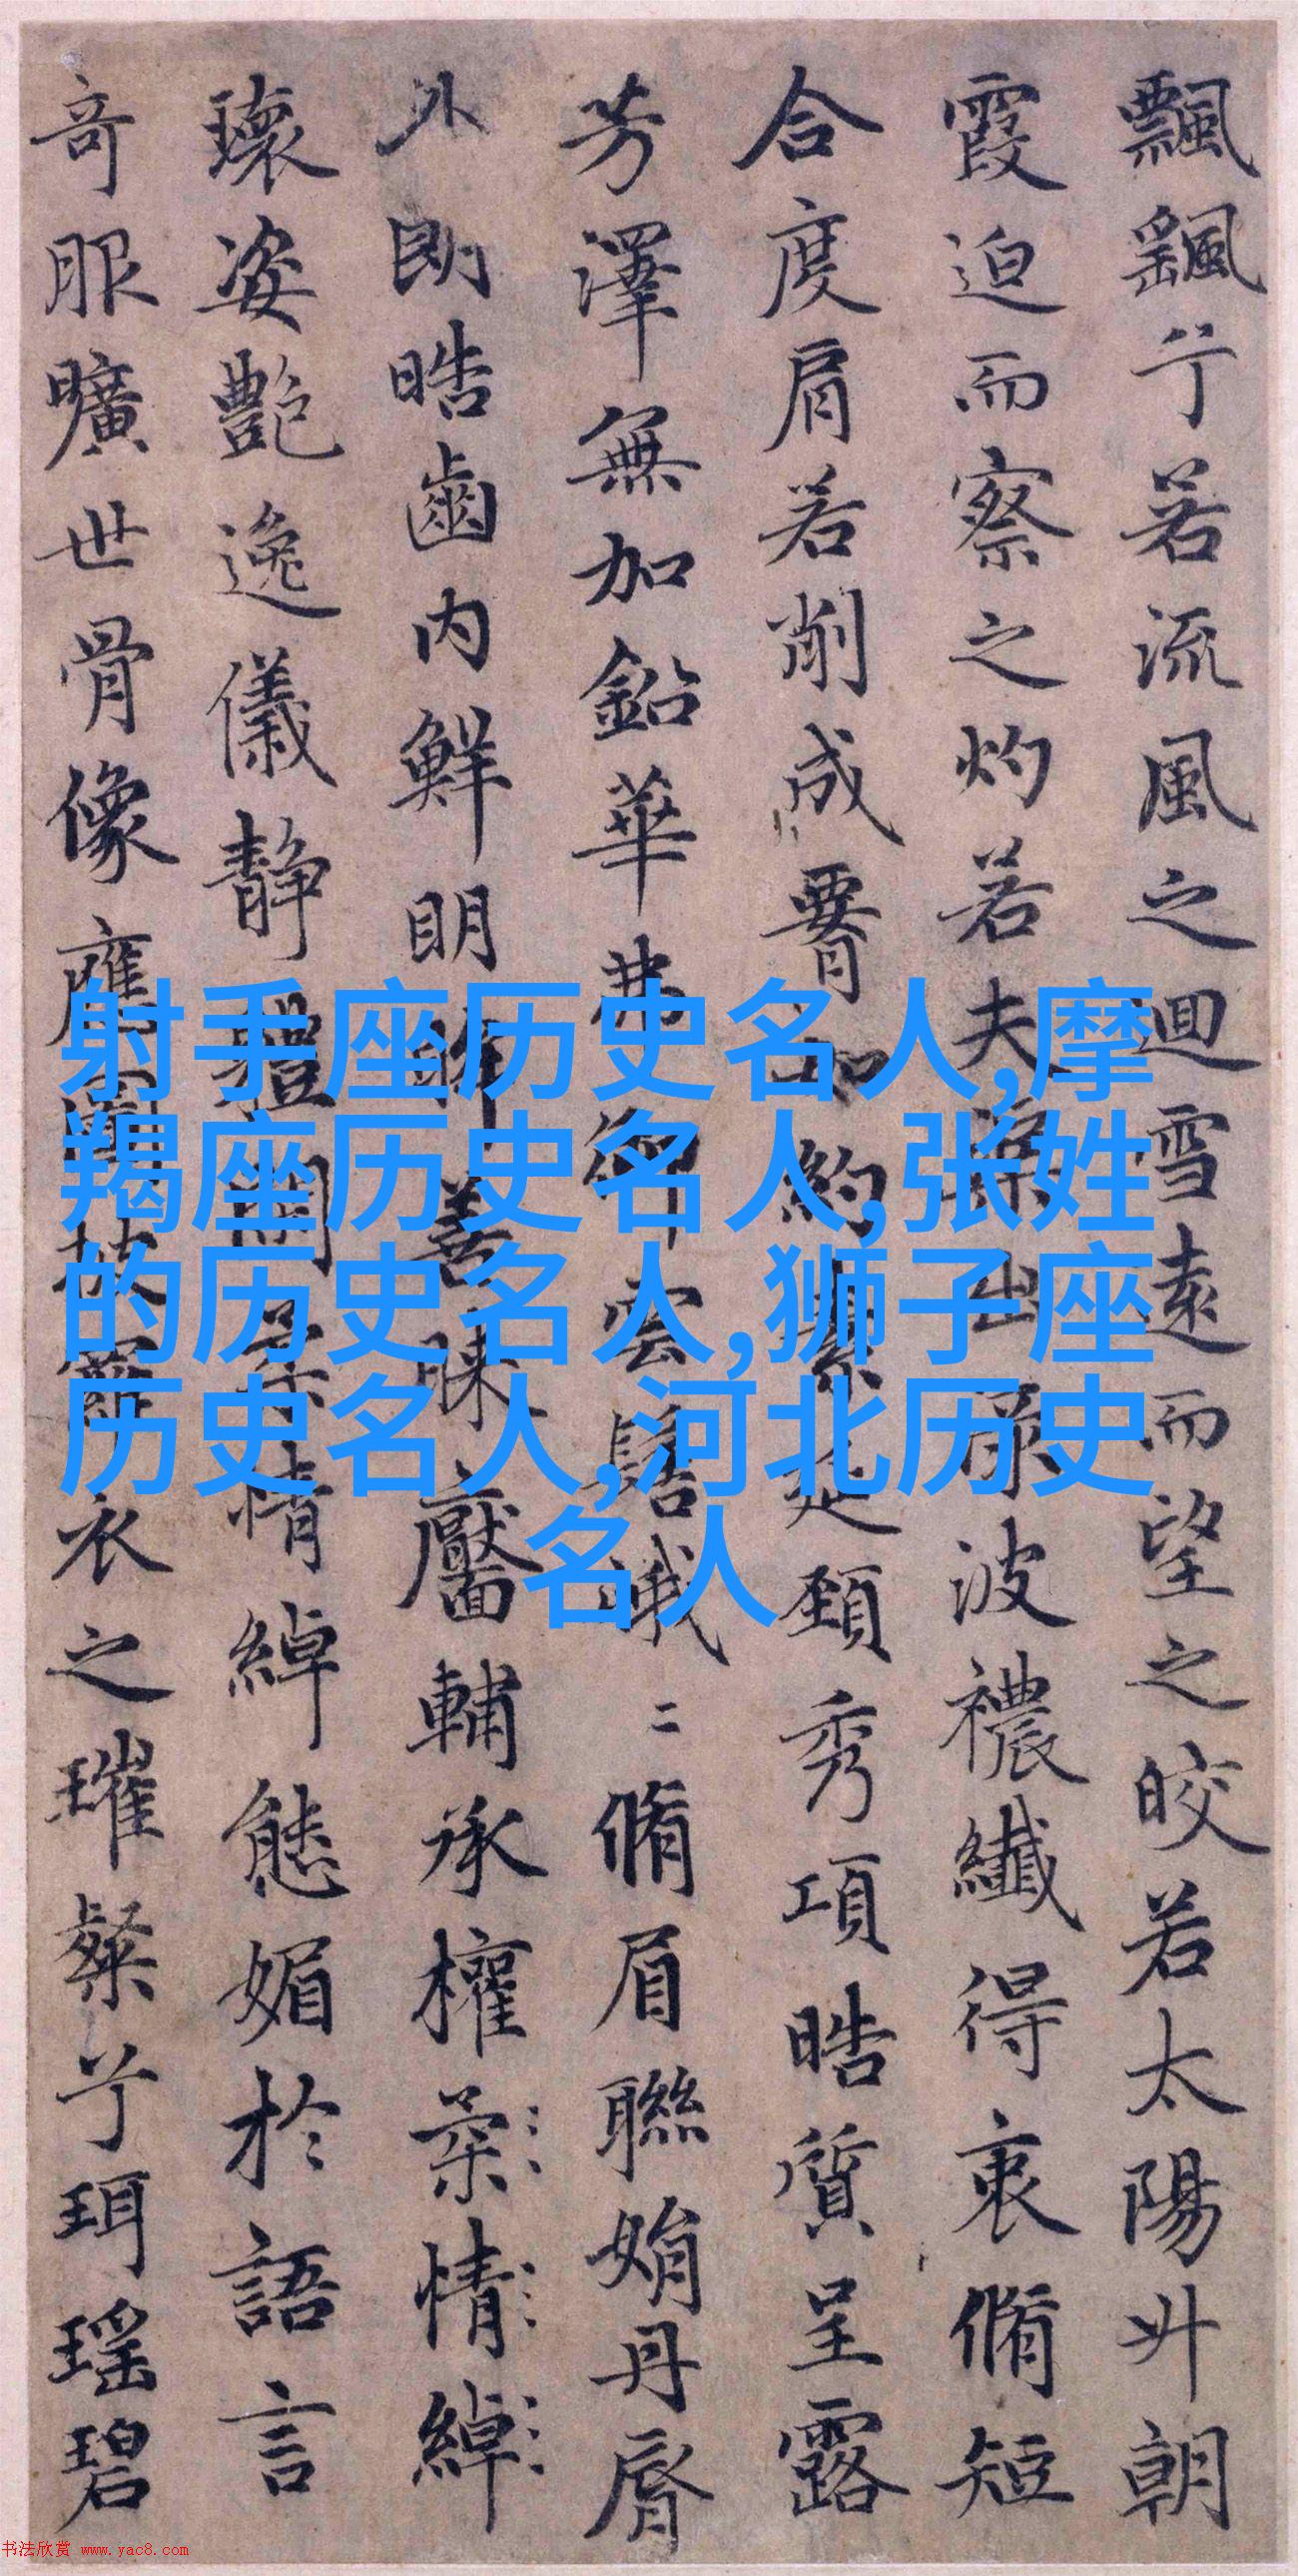 飄飖兮若流風之迴雪遠而望之皎若太陽升朝
霞迫而察之灼若夫蕖出淥波襛纖得衷脩短
合度肩若削成䙅如約素延頸秀項晧質呈露
芳澤無加鉛華弗御雲髻峨二脩眉聯娟丹脣
外朗晧齒内鮮明眸善睞靨輔承權柔情綽
瓌姿艷逸儀靜體閑柔情綽態媚於語言
奇服曠世骨像應圖披羅衣之璀粲兮珥瑤碧
射手座历史名人,摩
羯座历史名人,张姓
的历史名人,狮子座
历史名人,河北历史
名人
书法欣赏 www.yac8.com